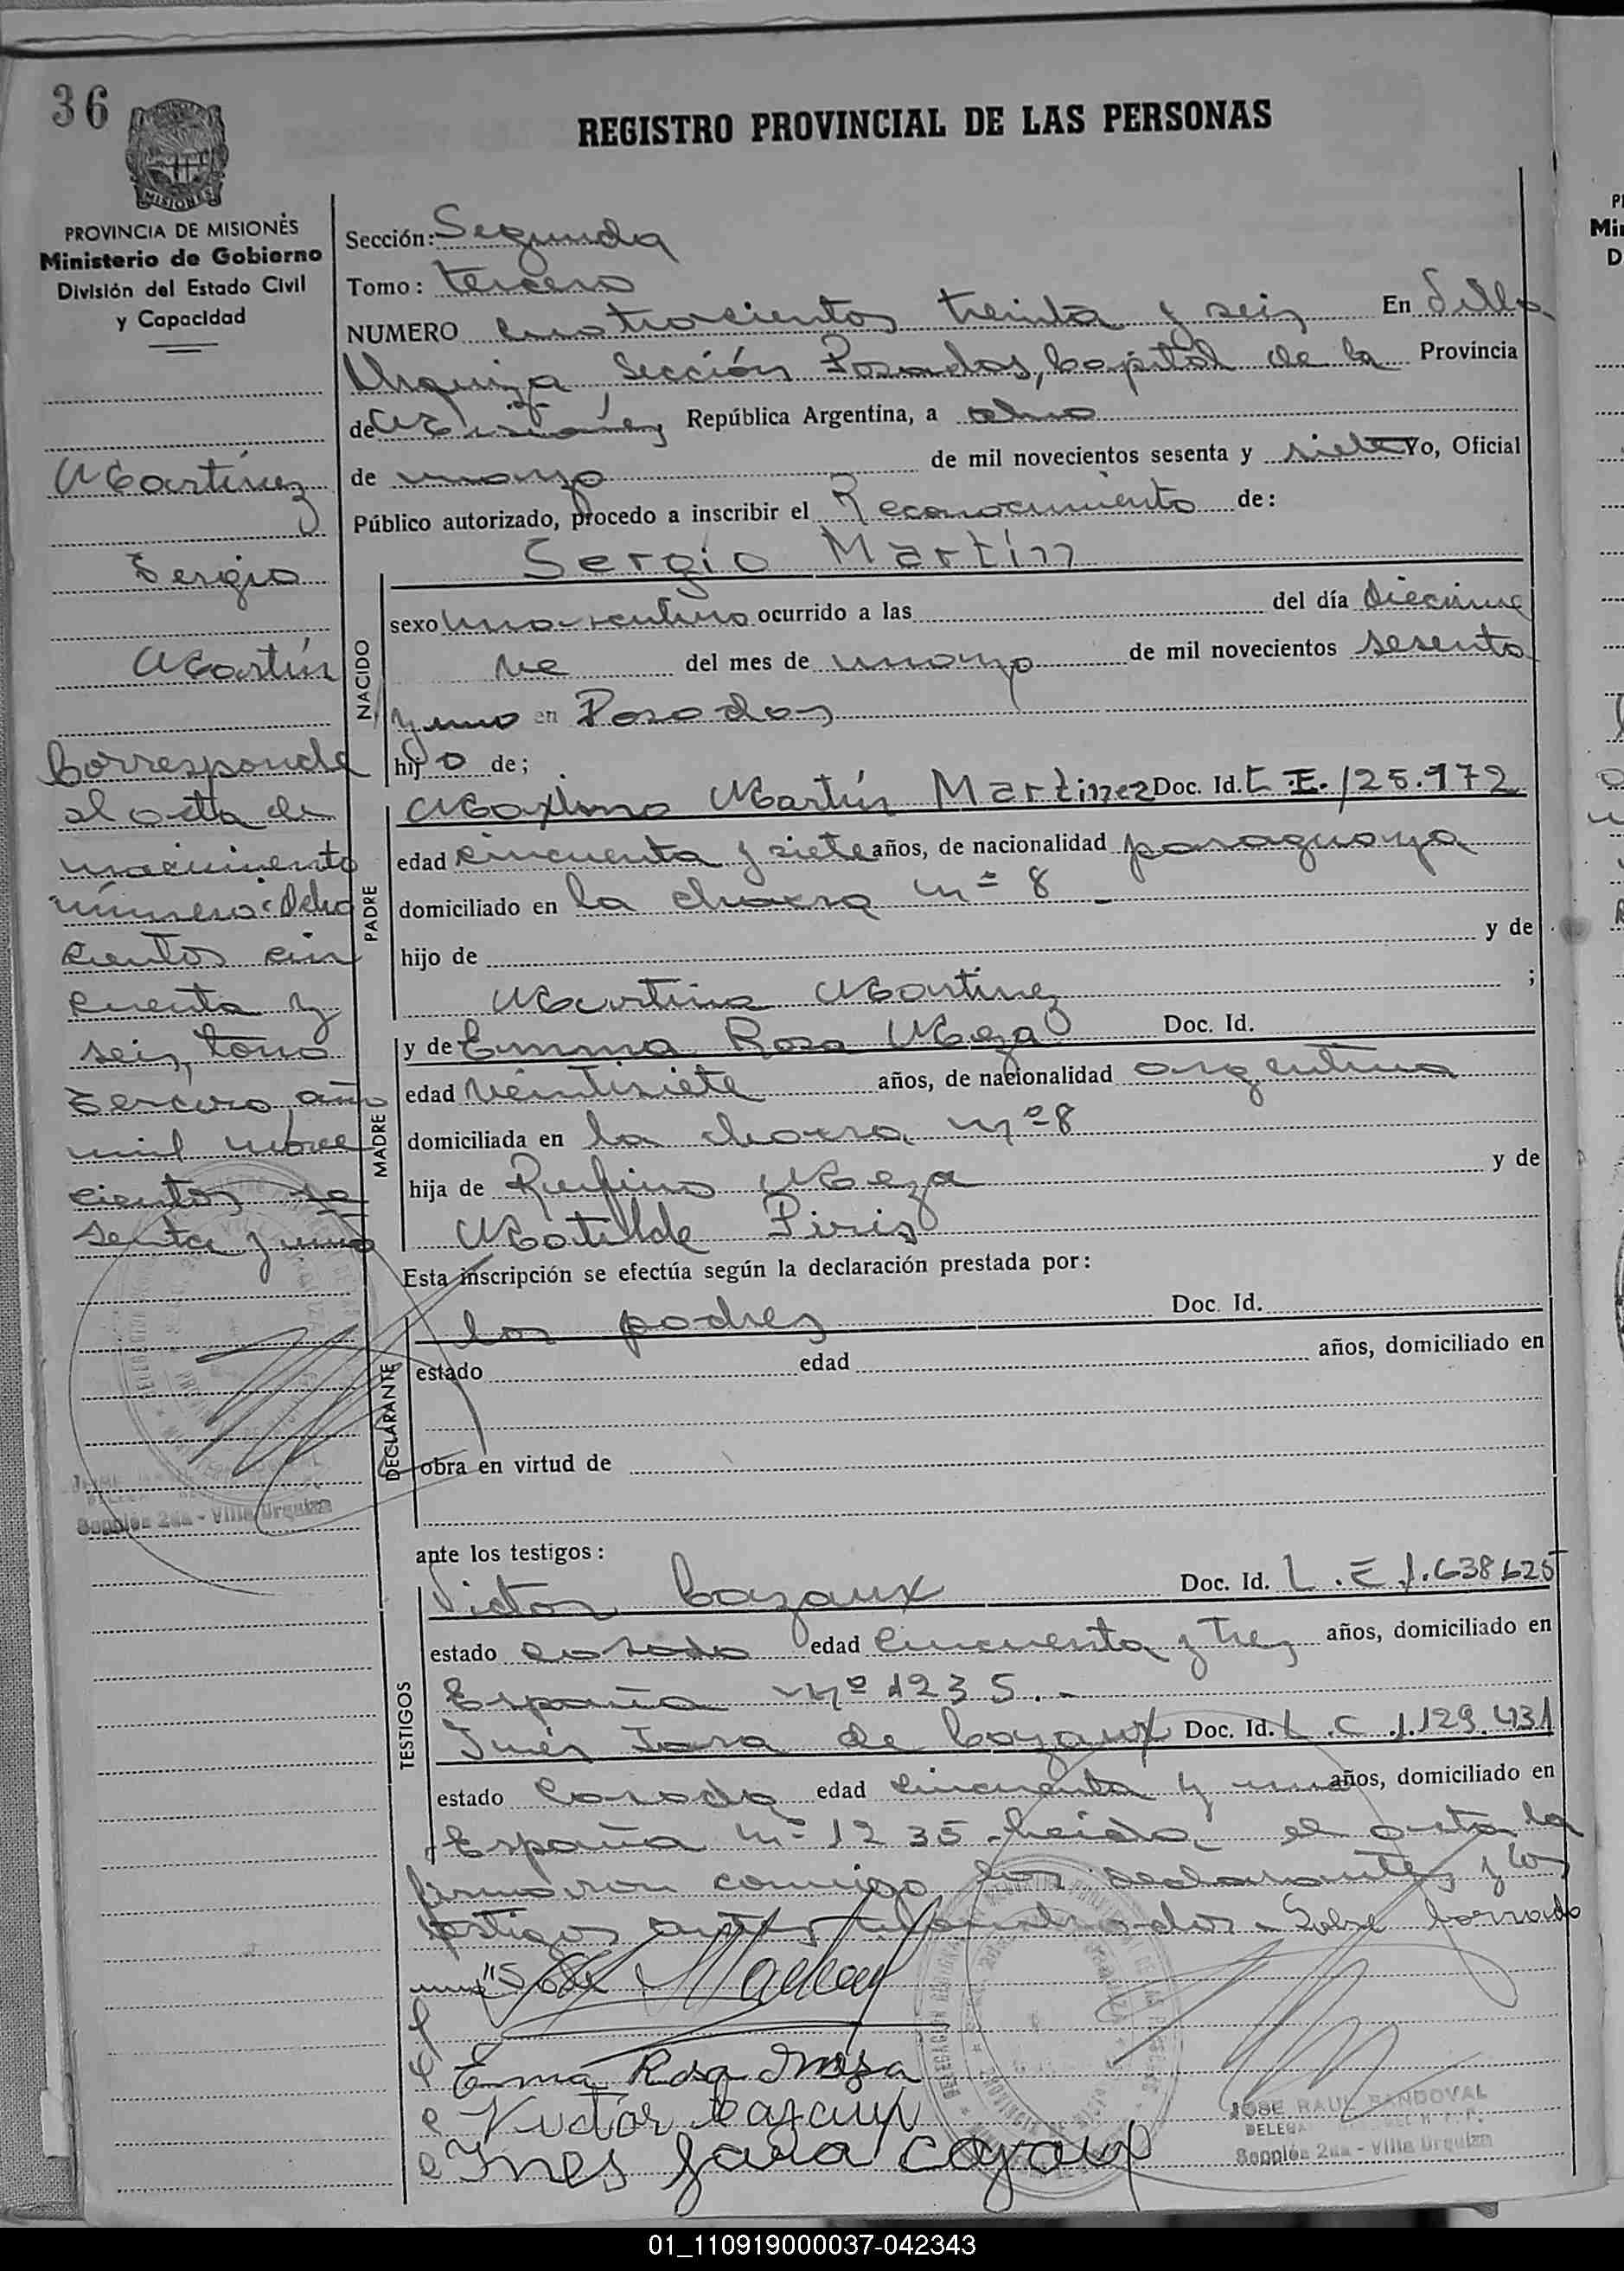 36
REGISTRO PROVINCIAL DE LAS PERSONAS
MISIONES
PROVINCIA DE MISIONES
Ministerio de Gobierno
División del Estado Civil
y Capacidad
Martínez
Sergio
Martín
Corresponde
al acta de
nacimiento
número: Ocho
cientos cin
cuenta y
seis, tomo
tercero, año
mil nove
cientos se
senta y uno
Sección: Segunda
Tomo: tercero
NUMERO cuatrocientos treinta y seis En Villa
Urquiza Sección Posadas, Capital de la Provincia
de Misiones República Argentina, a ocho
de mayo de mil novecientos sesenta y siete Yo, Oficial
Público autorizado, procedo a inscribir el Reconocimiento de:
Sergio Martín
NACIDO
sexo masculino ocurrido a las del día diecinue
ve del mes de mayo de mil novecientos sesenta
y uno en Posadas
hijo de;
PADRE
Máximo Martín Martinez Doc. Id. C. I. 125.972
edad cincuenta y siete años, de nacionalidad paraguaya
domiciliado en la chacra nº 8
hijo de y de
Martina Martinez ;
MADRE
y de Emma Rosa Meza Doc. Id.
edad veintisiete años, de nacionalidad argentina
domiciliada en la chacra nº 8
hija de Rufino Meza y de
Matilde Piris
Esta inscripción se efectúa según la declaración prestada por:
DECLARANTE
los padres Doc. Id.
estado edad años, domiciliado en
obra en virtud de
ante los testigos:
TESTIGOS
Victor Cazaux Doc. Id. L. E 1.638.625
estado casado edad cincuenta y tres años, domiciliado en
España Nº 1235.-
Inés Jara de Cazaux Doc. Id. L. C 1.129.431
estado casada edad cincuenta y un años, domiciliado en
España nº 1235. Leída el acta la
firmaron conmigo los declarantes y los
testigos antes Sobre borrado
Ema Rosa Mesa
Victor Cazaux
Ines Jara Cazaux
JOSE RAUL SANDOVAL
Sección 2da - Villa Urquiza
Sección 2da - Villa Urquiza
01_110919000037-042343